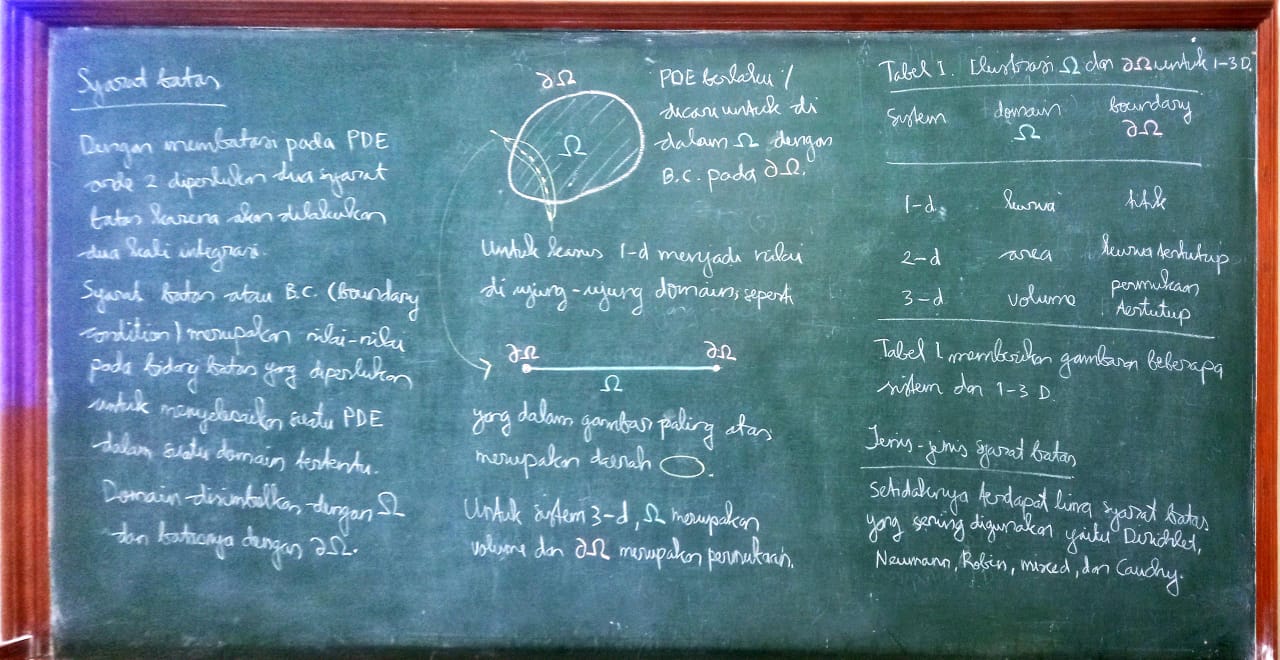 Syarat batas
Dengan membatasi pada PDE
orde 2 diperlukan dua syarat
batas karena akan dilakukan
dua kali integrasi.
Syarat batas atau B.C. (boundary
condition) merupakan nilai-nilai
pada bidang batas yang diperlukan
untuk menyelesaikan suatu PDE
dalam suatu domain tertentu.
Domain disimbolkan dengan Ω
dan batasnya dengan ∂Ω.
∂Ω
Ω
PDE berlaku /
dicari untuk di
dalam Ω dengan
B.C. pada ∂Ω.
Untuk kasus 1-d menjadi nilai
di ujung-ujung domain, seperti
∂Ω ∂Ω
Ω
yang dalam gambar paling atas
merupakan daerah
Untuk sistem 3-d, Ω merupakan
volume dan ∂Ω merupakan permukaan.
Tabel 1. Ilustrasi Ω dan ∂Ω untuk 1-3 D.
System domain boundary
Ω ∂Ω
1-d kurva titik
2-d area kurva tertutup
3-d volume permukaan
tertutup
Tabel 1 memberikan gambaran beberapa
sistem dari 1-3 D.
Jenis-jenis syarat batas
Setidaknya terdapat lima syarat batas
yang sering digunakan yaitu Dirichlet,
Neumann, Robin, mixed, dan Cauchy.